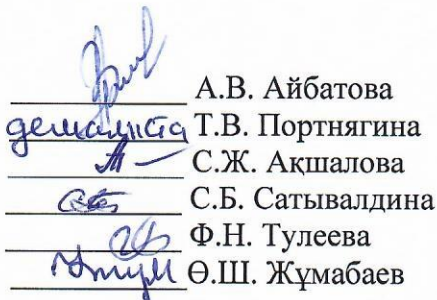 А.В. Айбатова
демалыста Т.В. Портнягина
С.Ж. Ақшалова
С.Б. Сатывалдина
Ф.Н. Тулеева
Ө.Ш. Жұмабаев